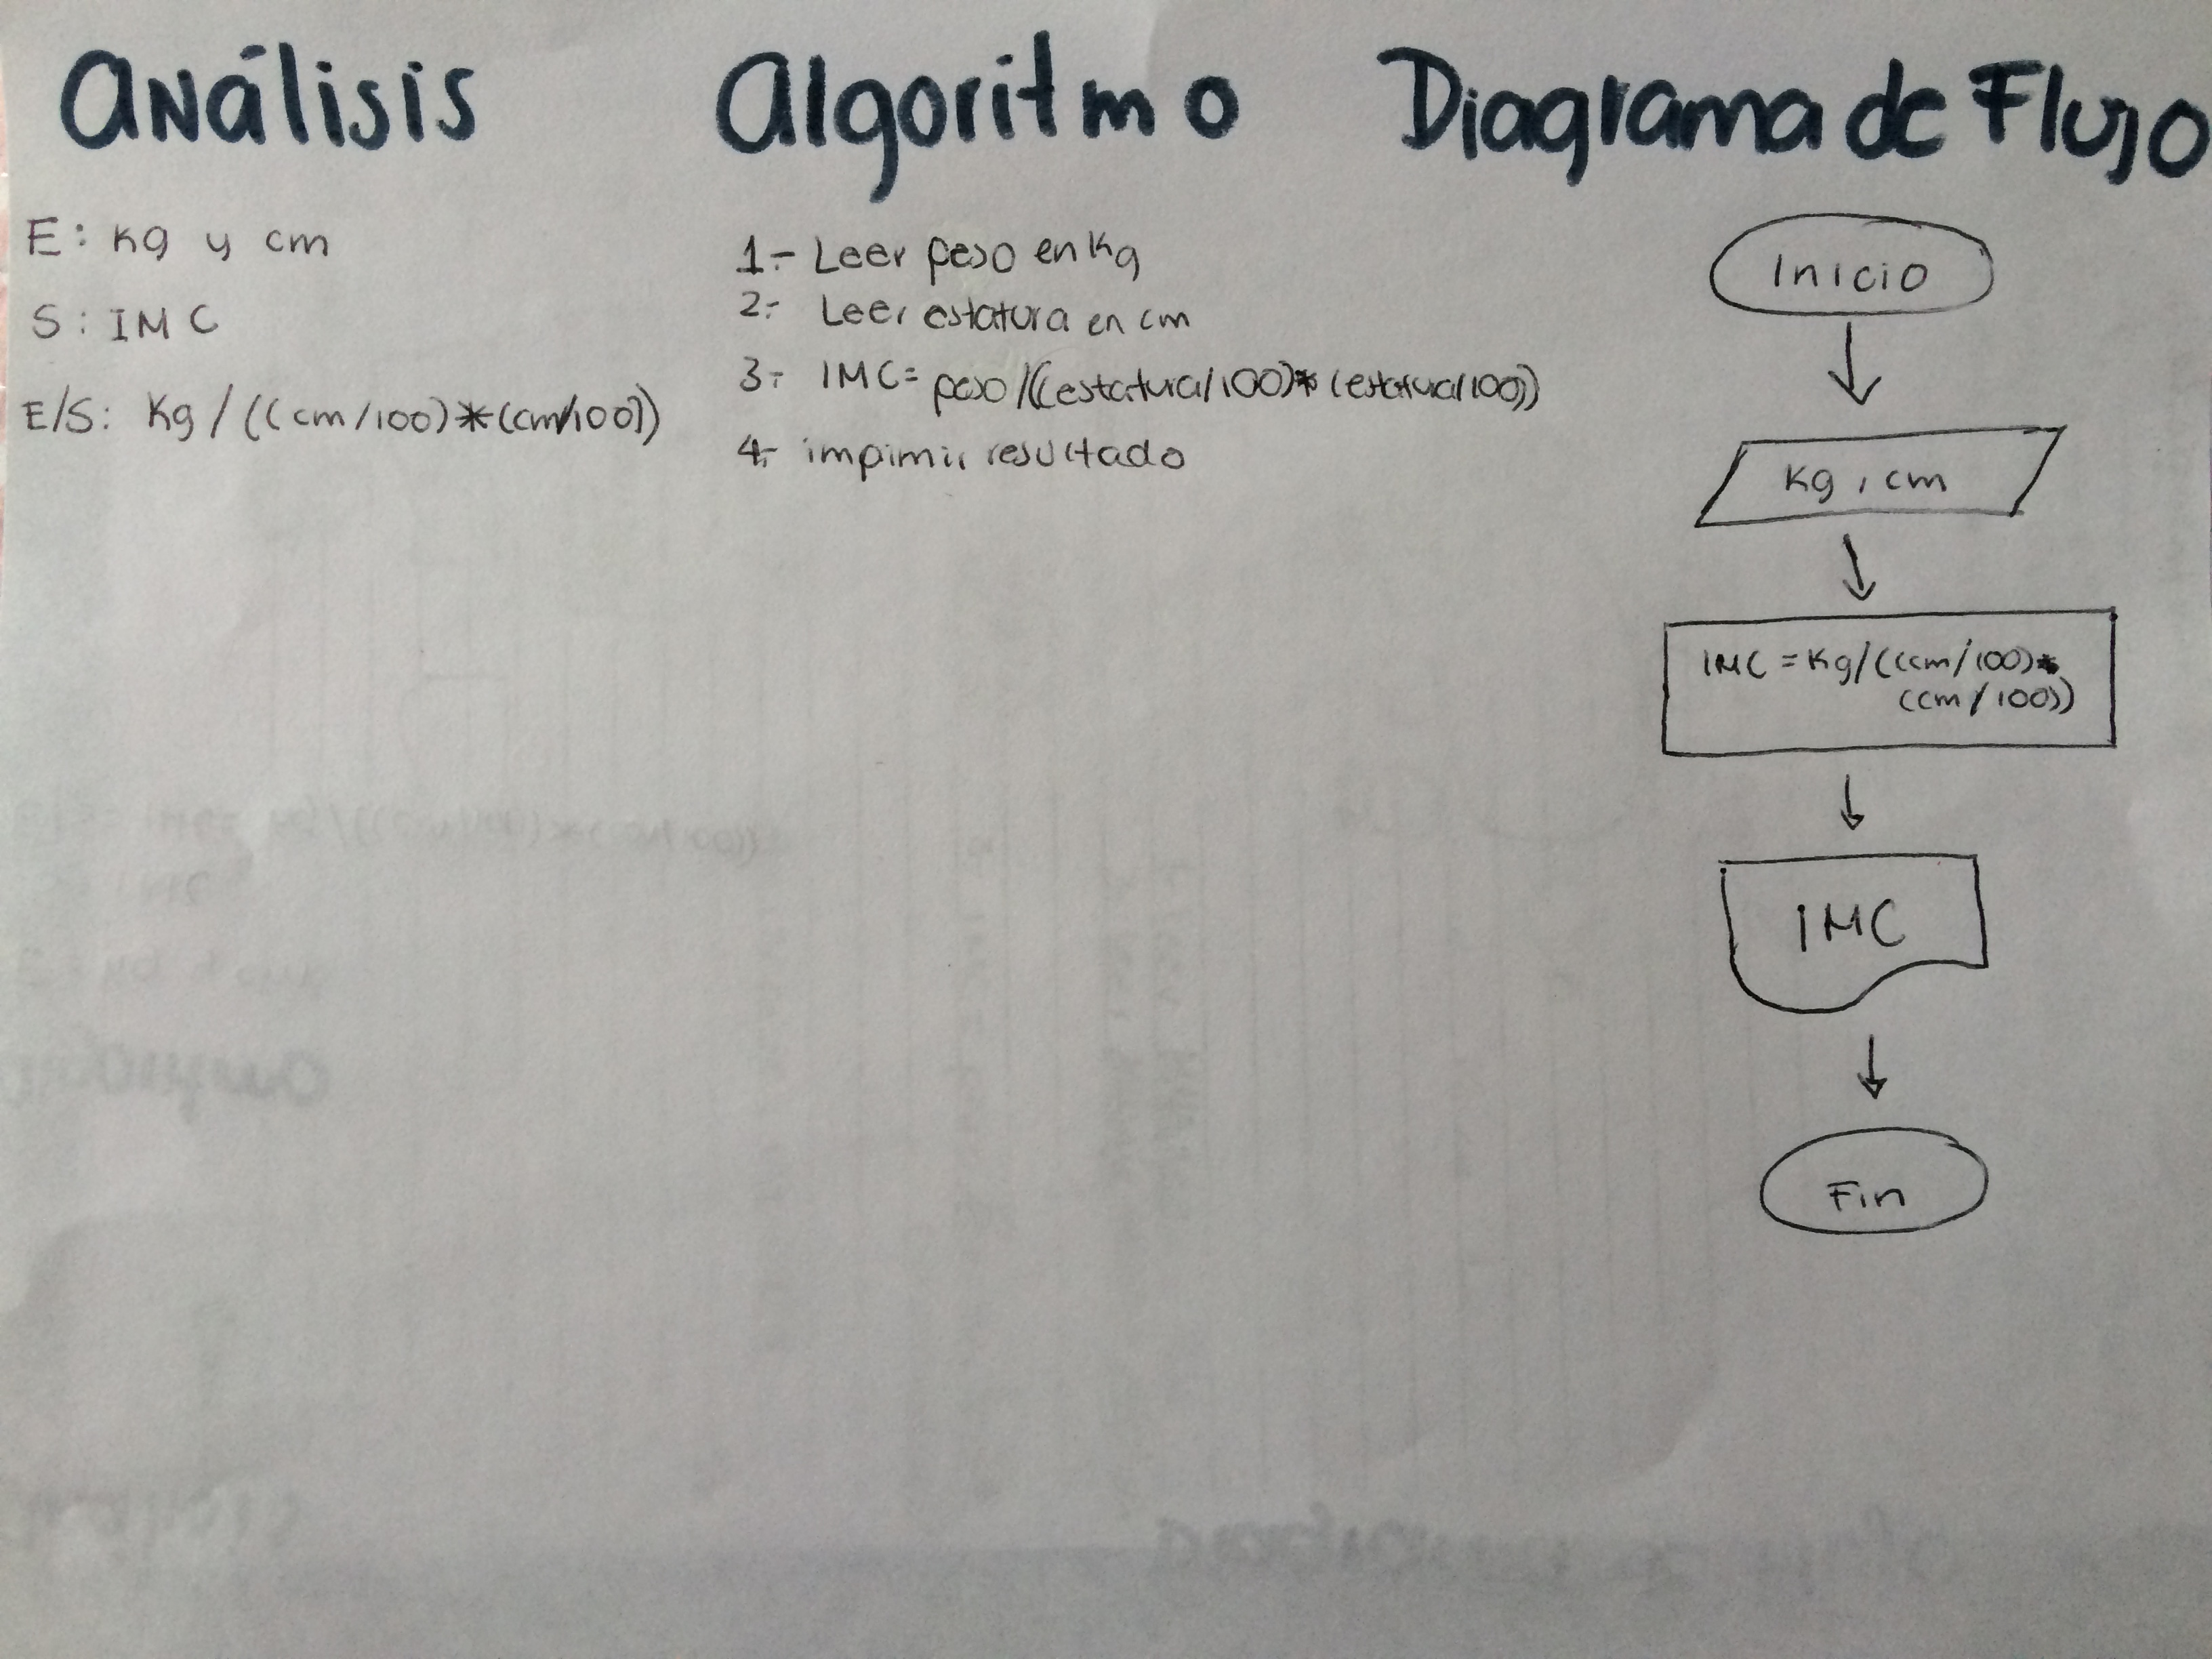 Análisis
E: Kg y cm
S: IMC
E/S: Kg / ((cm/100)*(cm/100))
Algoritmo
1.- Leer peso en Kg
2.- Leer estatura en cm
3.- IMC= peso/((estatura/100)*(estatura/100))
4.- impimir resultado
Diagrama de Flujo
Inicio
Kg, cm
IMC = Kg/((cm/100)*
(cm/100))
IMC
Fin